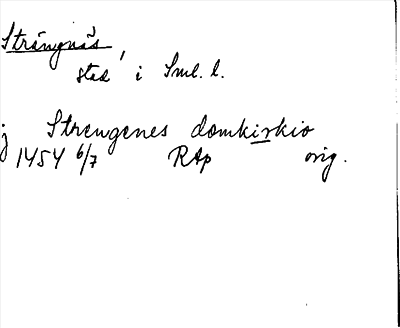 Strängnäs
stad i Sml. l.
j Strengenes domkirkio
1454 6/7 RAp orig.